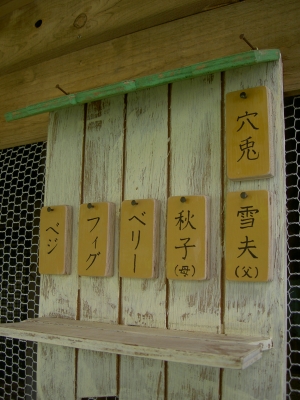 穴兎
雪夫(父)
秋子(母)
ベリー
フィグ
ベジ